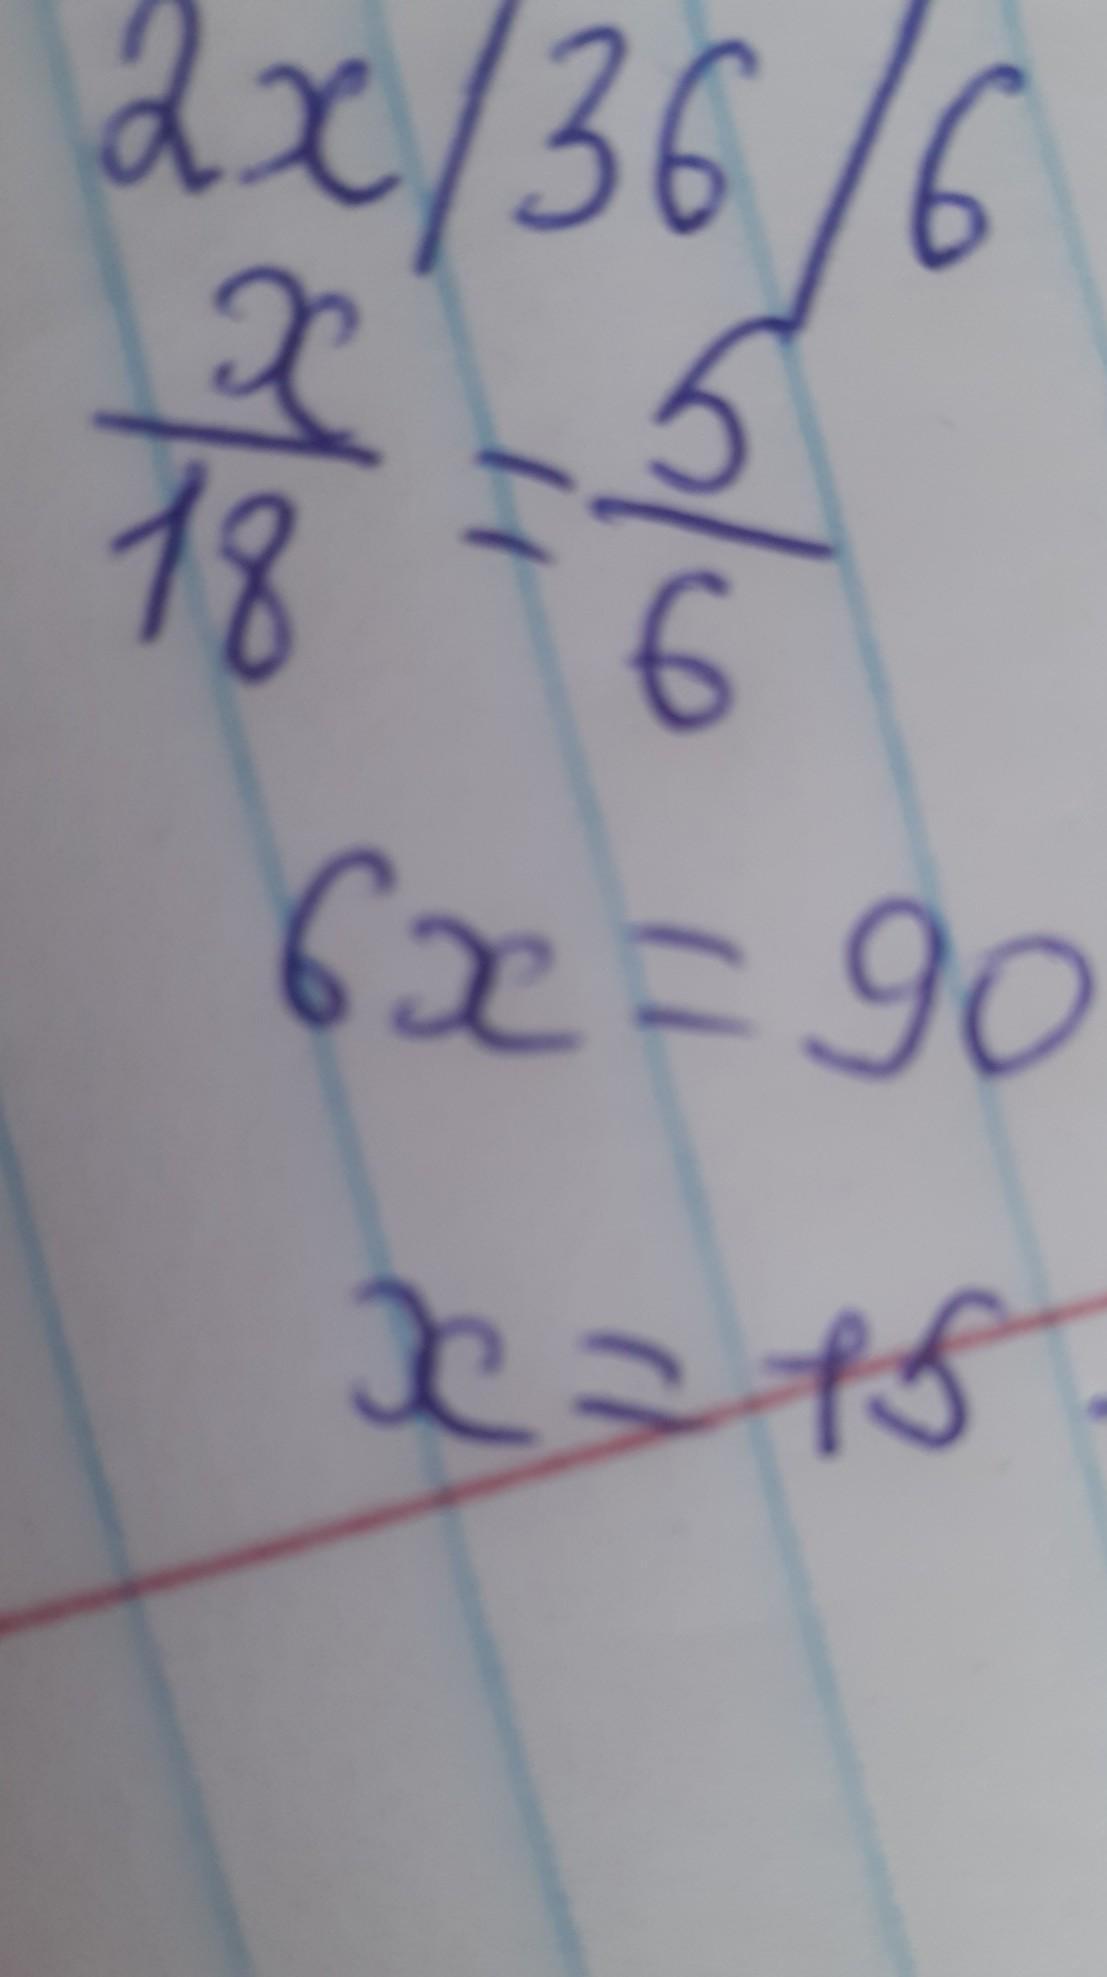 2x/36/6
x/18 = 5/6
6x = 90
x = 15